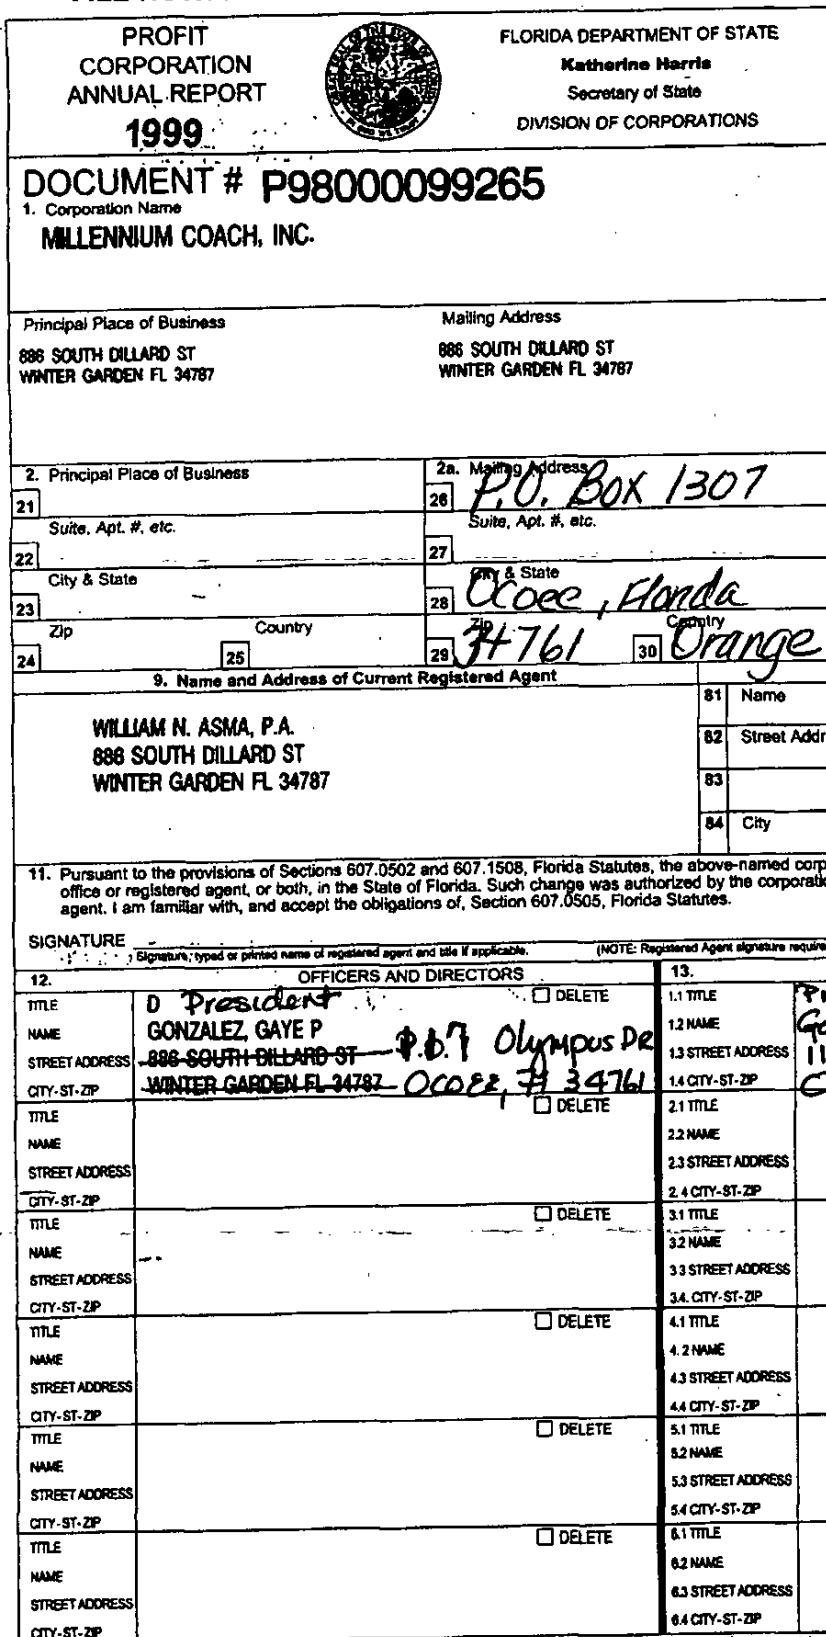 PROFIT
CORPORATION
ANNUAL REPORT
1999
FLORIDA DEPARTMENT OF STATE
Katherine Harris
Secretary of State
DIVISION OF CORPORATIONS
DOCUMENT # P98000099265
1. Corporation Name
MILLENNIUM COACH, INC.
Principal Place of Business
886 SOUTH DILLARD ST
WINTER GARDEN FL 34787
Mailing Address
886 SOUTH DILLARD ST
WINTER GARDEN FL 34787
2. Principal Place of Business
21
Suite, Apt. #, etc.
22
City & State
23
Zip
24
Country
25
2a. Mailing Address
26 P.O. Box 1307
Suite, Apt. #, etc.
27
City & State
28 Ocoee, Florida
Zip
29 34761
Country
30 Orange
9. Name and Address of Current Registered Agent
WILLIAM N. ASMA, P.A.
886 SOUTH DILLARD ST
WINTER GARDEN FL 34787
81 Name
82 Street Addr
83
84 City
11. Pursuant to the provisions of Sections 607.0502 and 607.1508, Florida Statutes, the above-named corp
office or registered agent, or both, in the State of Florida. Such change was authorized by the corporati
agent. I am familiar with, and accept the obligations of, Section 607.0505, Florida Statutes.
SIGNATURE
Signature, typed or printed name of registered agent and title if applicable. (NOTE: Registered Agent signature require
12. OFFICERS AND DIRECTORS
TITLE D President DELETE
NAME GONZALEZ, GAYE P
STREET ADDRESS 886 SOUTH DILLARD ST Olympus DR
CITY-ST-ZIP WINTER GARDEN FL 34787 Ocoee, Fl 34761
TITLE DELETE
NAME
STREET ADDRESS
CITY-ST-ZIP
TITLE DELETE
NAME
STREET ADDRESS
CITY-ST-ZIP
TITLE DELETE
NAME
STREET ADDRESS
CITY-ST-ZIP
TITLE DELETE
NAME
STREET ADDRESS
CITY-ST-ZIP
TITLE DELETE
NAME
STREET ADDRESS
CITY-ST-ZIP
13.
1.1 TITLE
1.2 NAME
1.3 STREET ADDRESS 11
1.4 CITY-ST-ZIP
2.1 TITLE
2.2 NAME
2.3 STREET ADDRESS
2.4 CITY-ST-ZIP
3.1 TITLE
3.2 NAME
3.3 STREET ADDRESS
3.4. CITY-ST-ZIP
4.1 TITLE
4.2 NAME
4.3 STREET ADDRESS
4.4 CITY-ST-ZIP
5.1 TITLE
5.2 NAME
5.3 STREET ADDRESS
5.4 CITY-ST-ZIP
6.1 TITLE
6.2 NAME
6.3 STREET ADDRESS
6.4 CITY-ST-ZIP